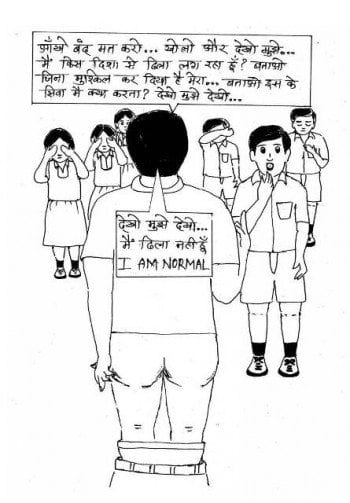 आँखे बंद मत करो... खोलो और देखो मुझे...
मैं किस दिशा से ढिला लग रहा हूँ? बताओ
जिना मुश्किल कर दिया है मेरा... बताओ इस के
सिवा मैं क्या करता? देखो मुझे देखो...
देखो मुझे देखो...
मैं ढिला नहीं हूँ
I AM NORMAL